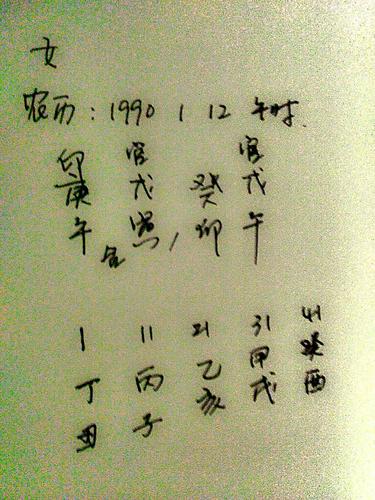 女
农历：1990 1 12 午时
印 官 官
庚 戊 癸 戊
午 寅 卯 午
合
1 11 21 31 41
丁 丙 乙 甲 癸
丑 子 亥 戌 酉